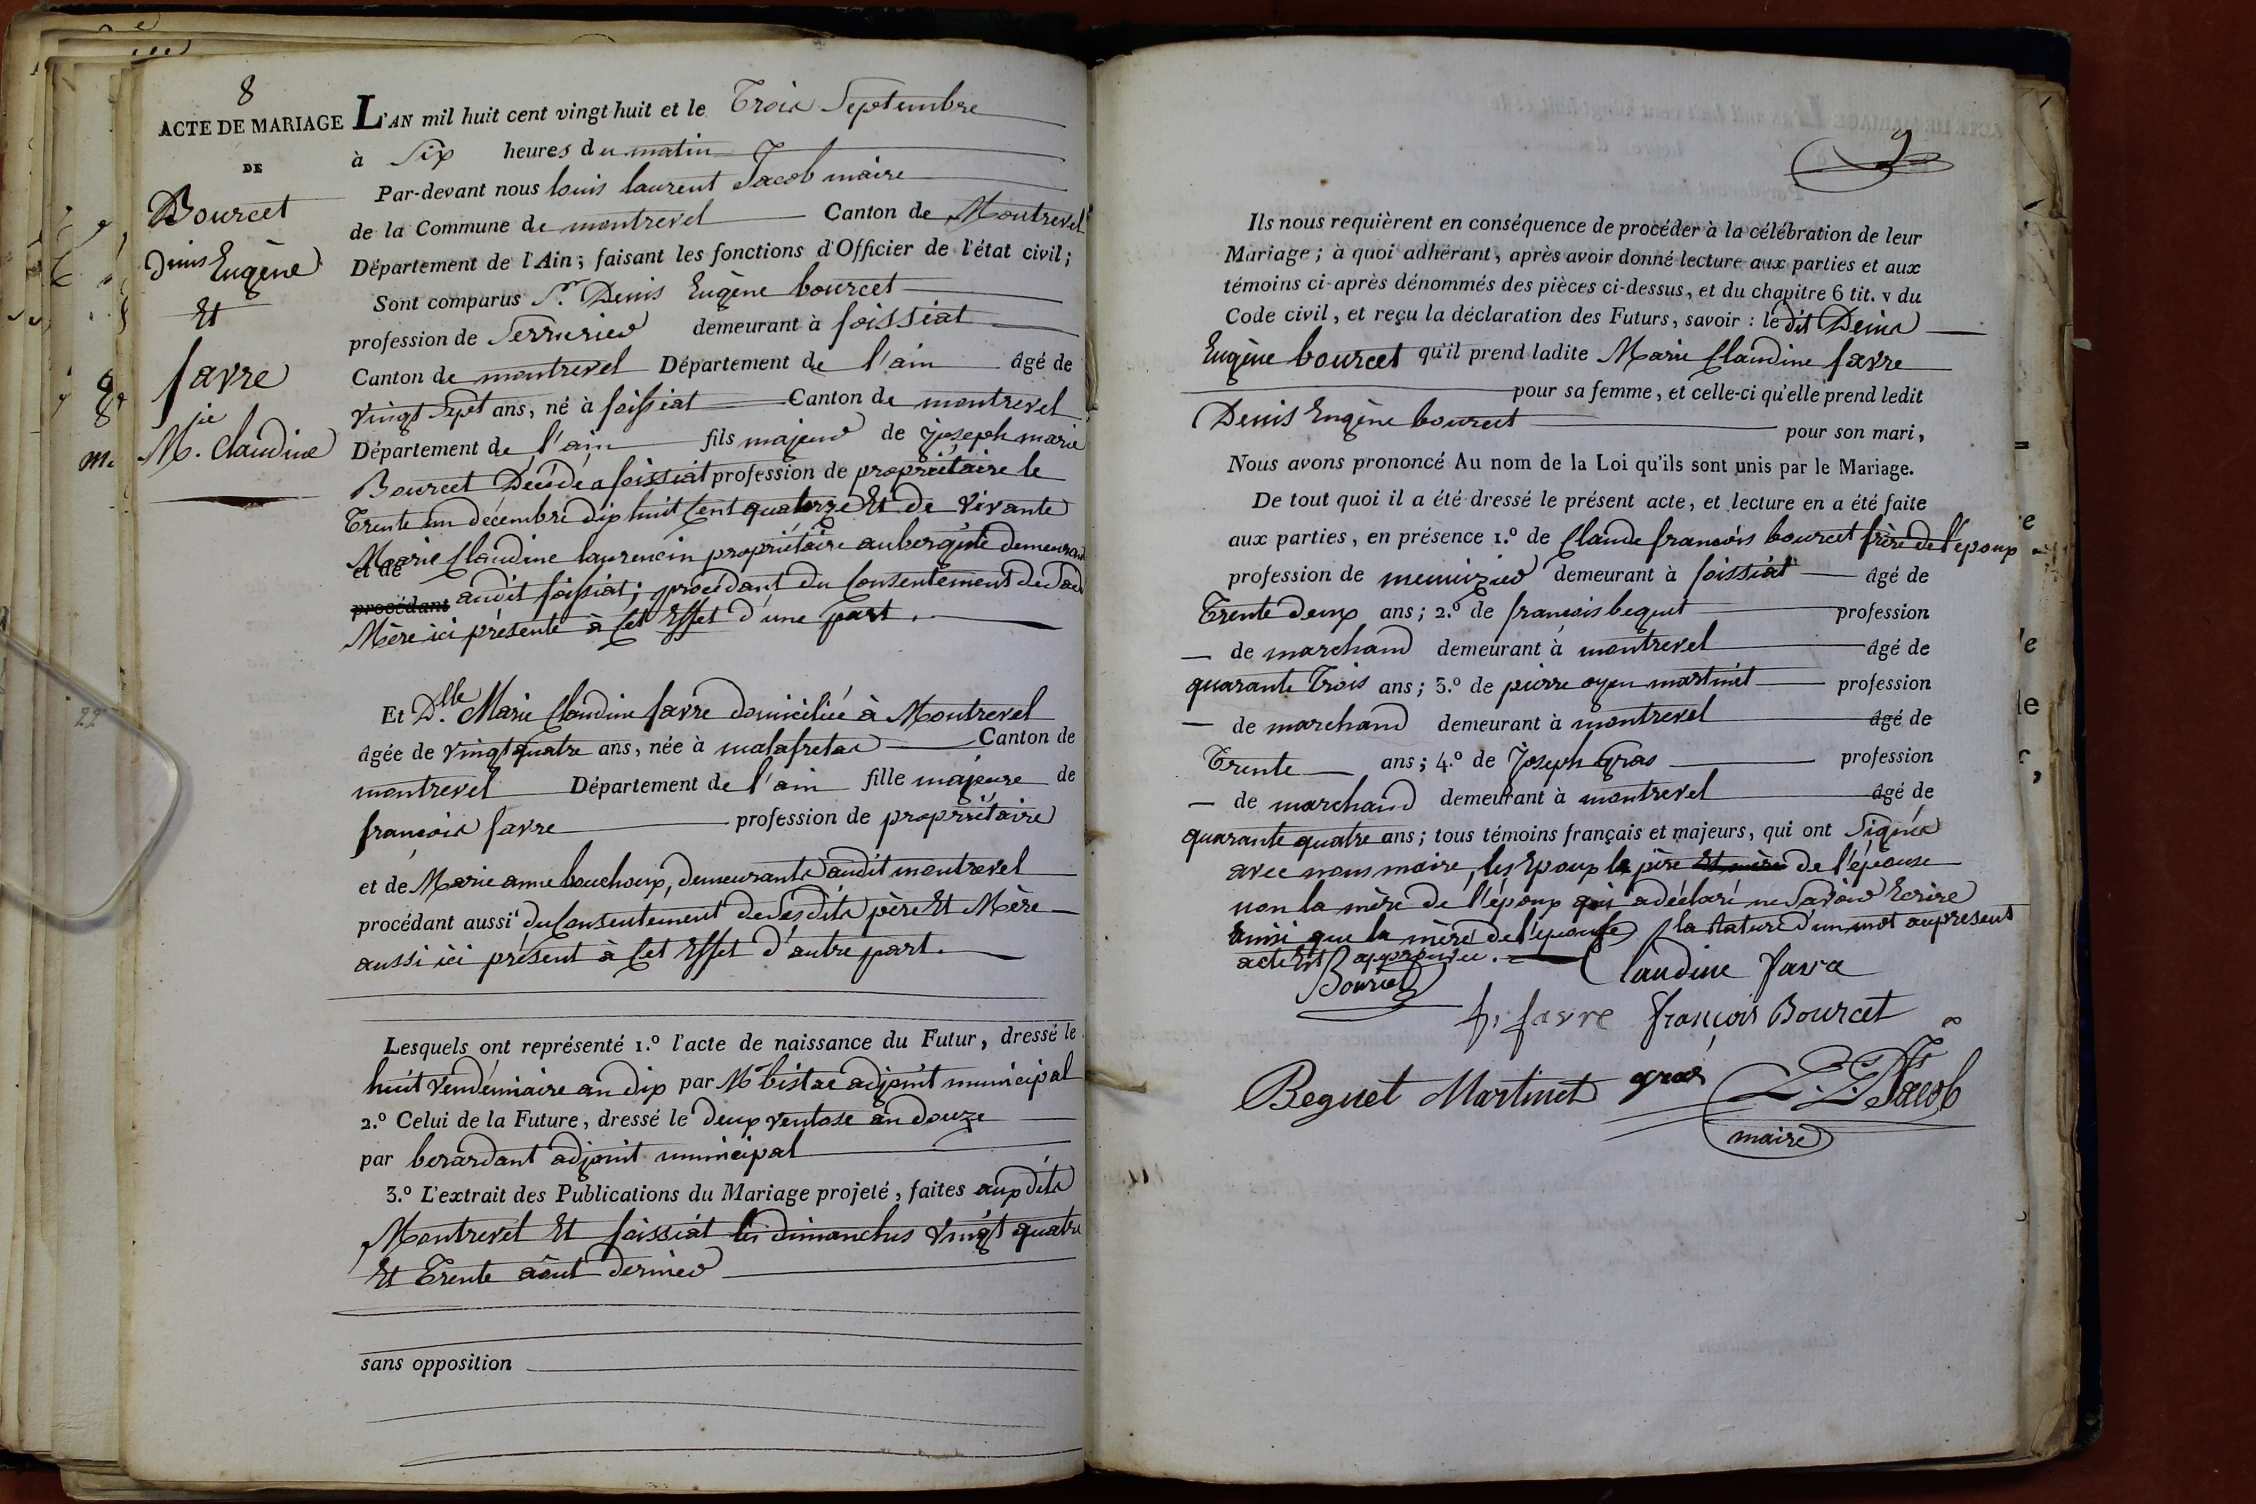 8
ACTE DE MARIAGE
DE
Bourcet
Denis Eugène
Et
favre
M.ie Claudine
L'AN mil huit cent vingt-huit et le Trois Septembre
à Six heures du matin
Par-devant nous louis laurent Jacob maire
de la Commune de montrevel Canton de Montrevel
Département de l'Ain; faisant les fonctions d'Officier de l'état civil;
Sont comparus Sr. Denis Eugène bourcet
profession de Serrurier demeurant à foissiat
Canton de montrevel Département de l'ain âgé de
vingt Sept ans, né à foissiat Canton de montrevel
Département de l'ain fils majeur de joseph marie
Bourcet Décédé a foissiat profession de propriétaire le
Trente un décembre dix huit Cent quatorze Et de vivante
Marie Claudine laurencin propriétaire aubergiste demeurant
et de
procédant audit foissiat; procédant du Consentement de Sad
Mère ici présente à Cet Effet d'une part.
Et D.lle Marie Claudine favre domiciliée à Montrevel
âgée de vingt quatre ans, née à malafretas Canton de
montrevel Département de l'ain fille majeure de
françois favre profession de propriétaire
et de Marie anne bouchoux, demeurants audit montrevel
procédant aussi du Consentement de Sesdits père Et Mère
aussi ici présent à Cet Effet d'autre part.
Lesquels ont représenté 1.º l'acte de naissance du Futur, dressé le
huit vendémiaire an dix par Mr bistac adjoint municipal
2.º Celui de la Future, dressé le deux ventose an douze
par berardant adjoint municipal
3.º L'extrait des Publications du Mariage projeté, faites aux dits
Montrevel Et foissiat les dimanches vingt quatre
Et Trente août dernier
sans opposition
9
Ils nous requièrent en conséquence de procéder à la célébration de leur
Mariage; à quoi adhérant, après avoir donné lecture aux parties et aux
témoins ci-après dénommés des pièces ci-dessus, et du chapitre 6 tit. v du
Code civil, et reçu la déclaration des Futurs, savoir: le dit Denis
Eugène bourcet qu'il prend ladite Marie Claudine favre
pour sa femme, et celle-ci qu'elle prend ledit
Denis Eugène bourcet pour son mari,
Nous avons prononcé Au nom de la Loi qu'ils sont unis par le Mariage.
De tout quoi il a été dressé le présent acte, et lecture en a été faite
aux parties, en présence 1.º de Claude françois bourcet frère de l'époux
profession de menuizier demeurant à foissiat âgé de
Trente deux ans; 2.º de françois beguet profession
de marchand demeurant à montrevel âgé de
quarante Trois ans; 3.º de pierre oyen martinet profession
de marchand demeurant à montrevel âgé de
Trente ans; 4.º de joseph Gras profession
de marchand demeurant à montrevel âgé de
quarante quatre ans; tous témoins français et majeurs, qui ont Signés
avec nous maire, les Epoux le père Et mère de l'épouse
non la mère de l'époux qui a déclaré ne Savoir Ecrire
ainsi que la mère de l'épouse la Rature d'un mot au present
acte Est approuvée.
Bourcet Claudine Favre
fs favre françois Bourcet
Beguet Martinet gras L. L. Jacob
maire
22